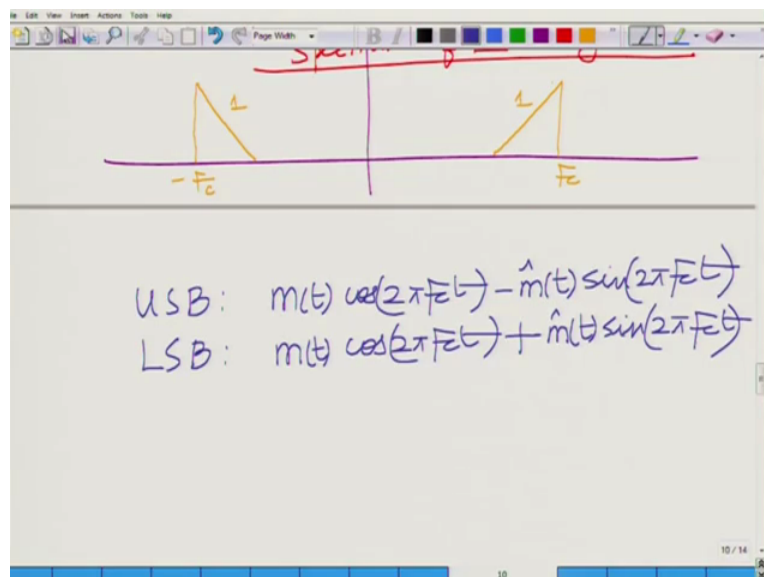 File Edit View Insert Actions Tools Help
Page Width
B I
1 1
-Fc Fc
USB: m(t) cos(2πFct) - m̂(t) sin(2πFct)
LSB: m(t) cos(2πFct) + m̂(t) sin(2πFct)
10 / 14
10